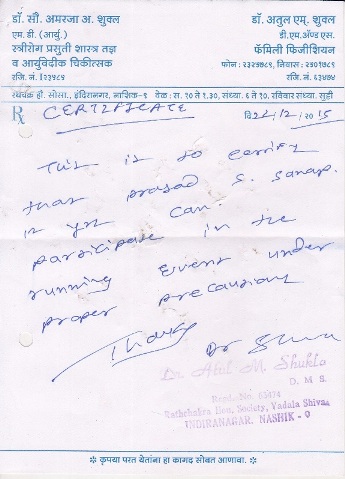 डॉ. सौ. अमरजा अ. शुक्ल
एम. डी. (आयु.)
स्त्रीरोग प्रसुती शास्त्र तज्ञ
व आयुर्वेदीक चिकीत्सक
रजि. नं. I २३४८९
डॉ. अतुल एम्. शुक्ल
डी.एम.अॅण्ड एस.
फॅमिली फिजीशियन
फोन : २३२५७८९, निवास : २३०१७८९
रजि. नं. ६५४७४
रथचक्र हौ. सोसा., इंदिरानगर, नाशिक-९ वेळ : स. १० ते १.३०, संध्या. ६ ते १०, रविवार संध्या. सुट्टी
Rx CERTIFICATE
दि 22/12/2015
This is to certify
that prasad S. Sanap.
is fit can
participate in the
running event under
proper precautions
Thanks
Dr Shukla
Dr. Atul M. Shukla
D. M. S.
Regd. No. 65474
Rathchakra Hou. Society, Vadala Shivar
INDIRANAGAR, NASHIK - 9
❉ कृपया परत येतांना हा कागद सोबत आणावा. ❉